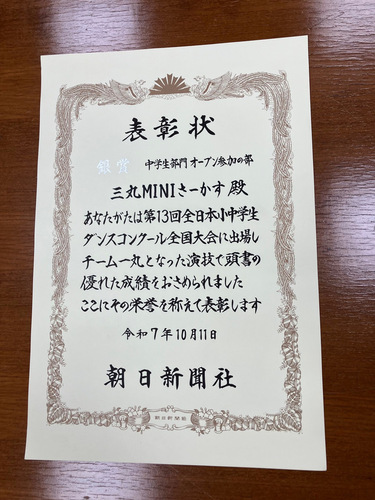 表彰状
銀賞 中学生部門 オープン参加の部
三丸MINIさーかす 殿
あなたがたは第13回全日本小中学生
ダンスコンクール全国大会に出場し
チーム一丸となった演技で頭書の
優れた成績をおさめられました
ここにその栄誉を称えて表彰します
令和7年10月11日
朝日新聞社
朝日新聞社